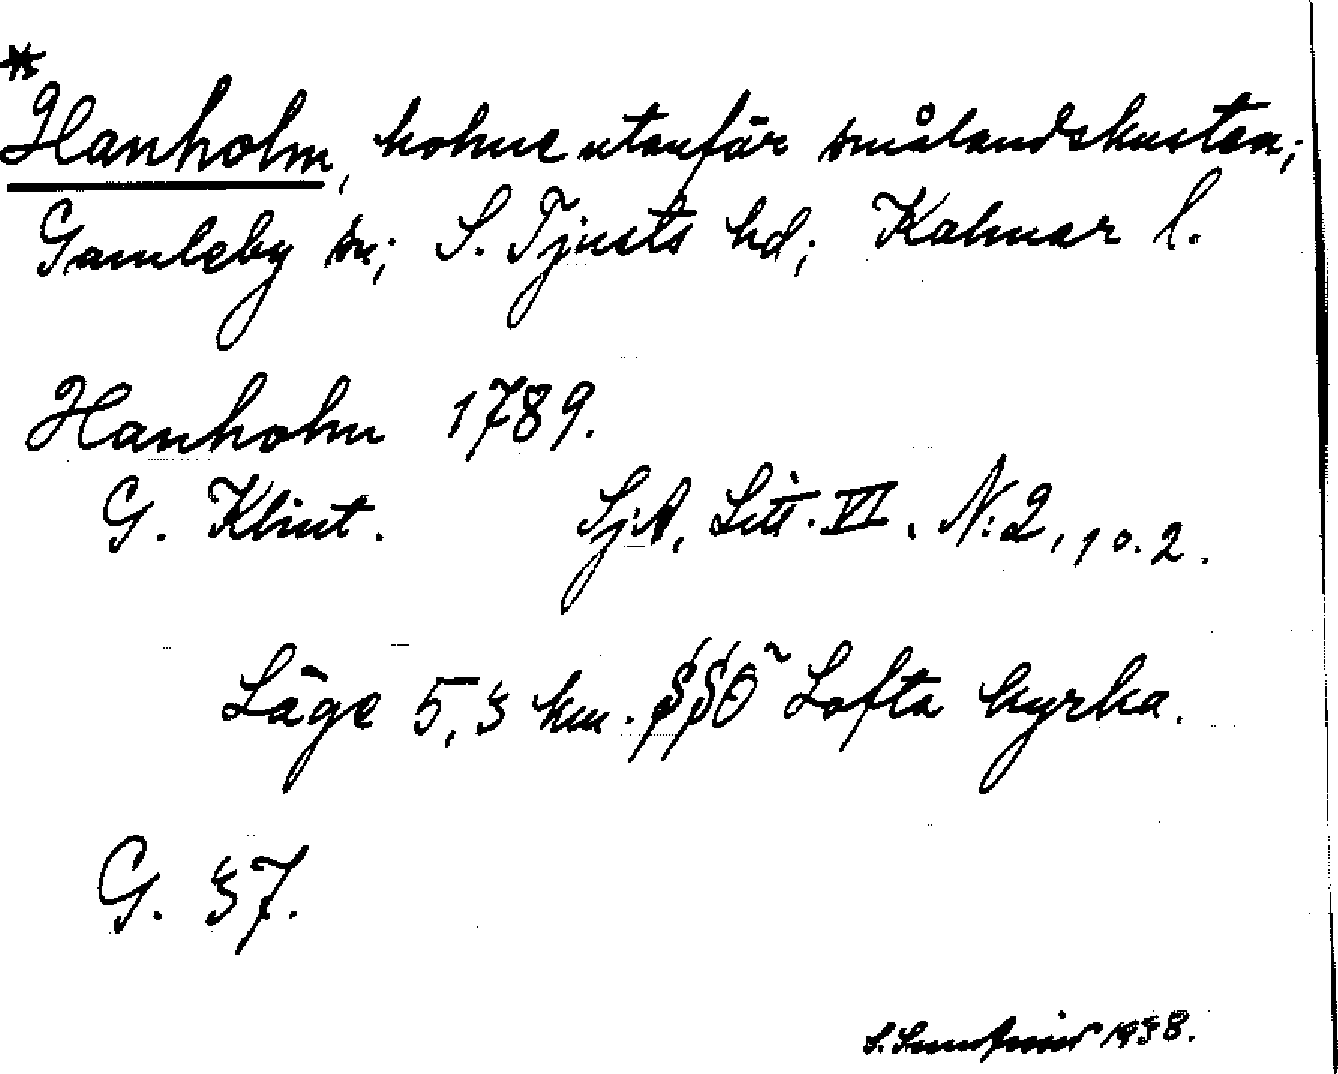 *
Hanholm, holme utanför smålandskusten;
Gamleby sn; S. Tjusts hd; Kalmar l.
Hanholm 1789.
G. Klint. SjA, Litt. VI. N:2, 1 o. 2.
Läge 5,3 km. SSÖ Lofta kyrka.
G. 37.
S. 1938.